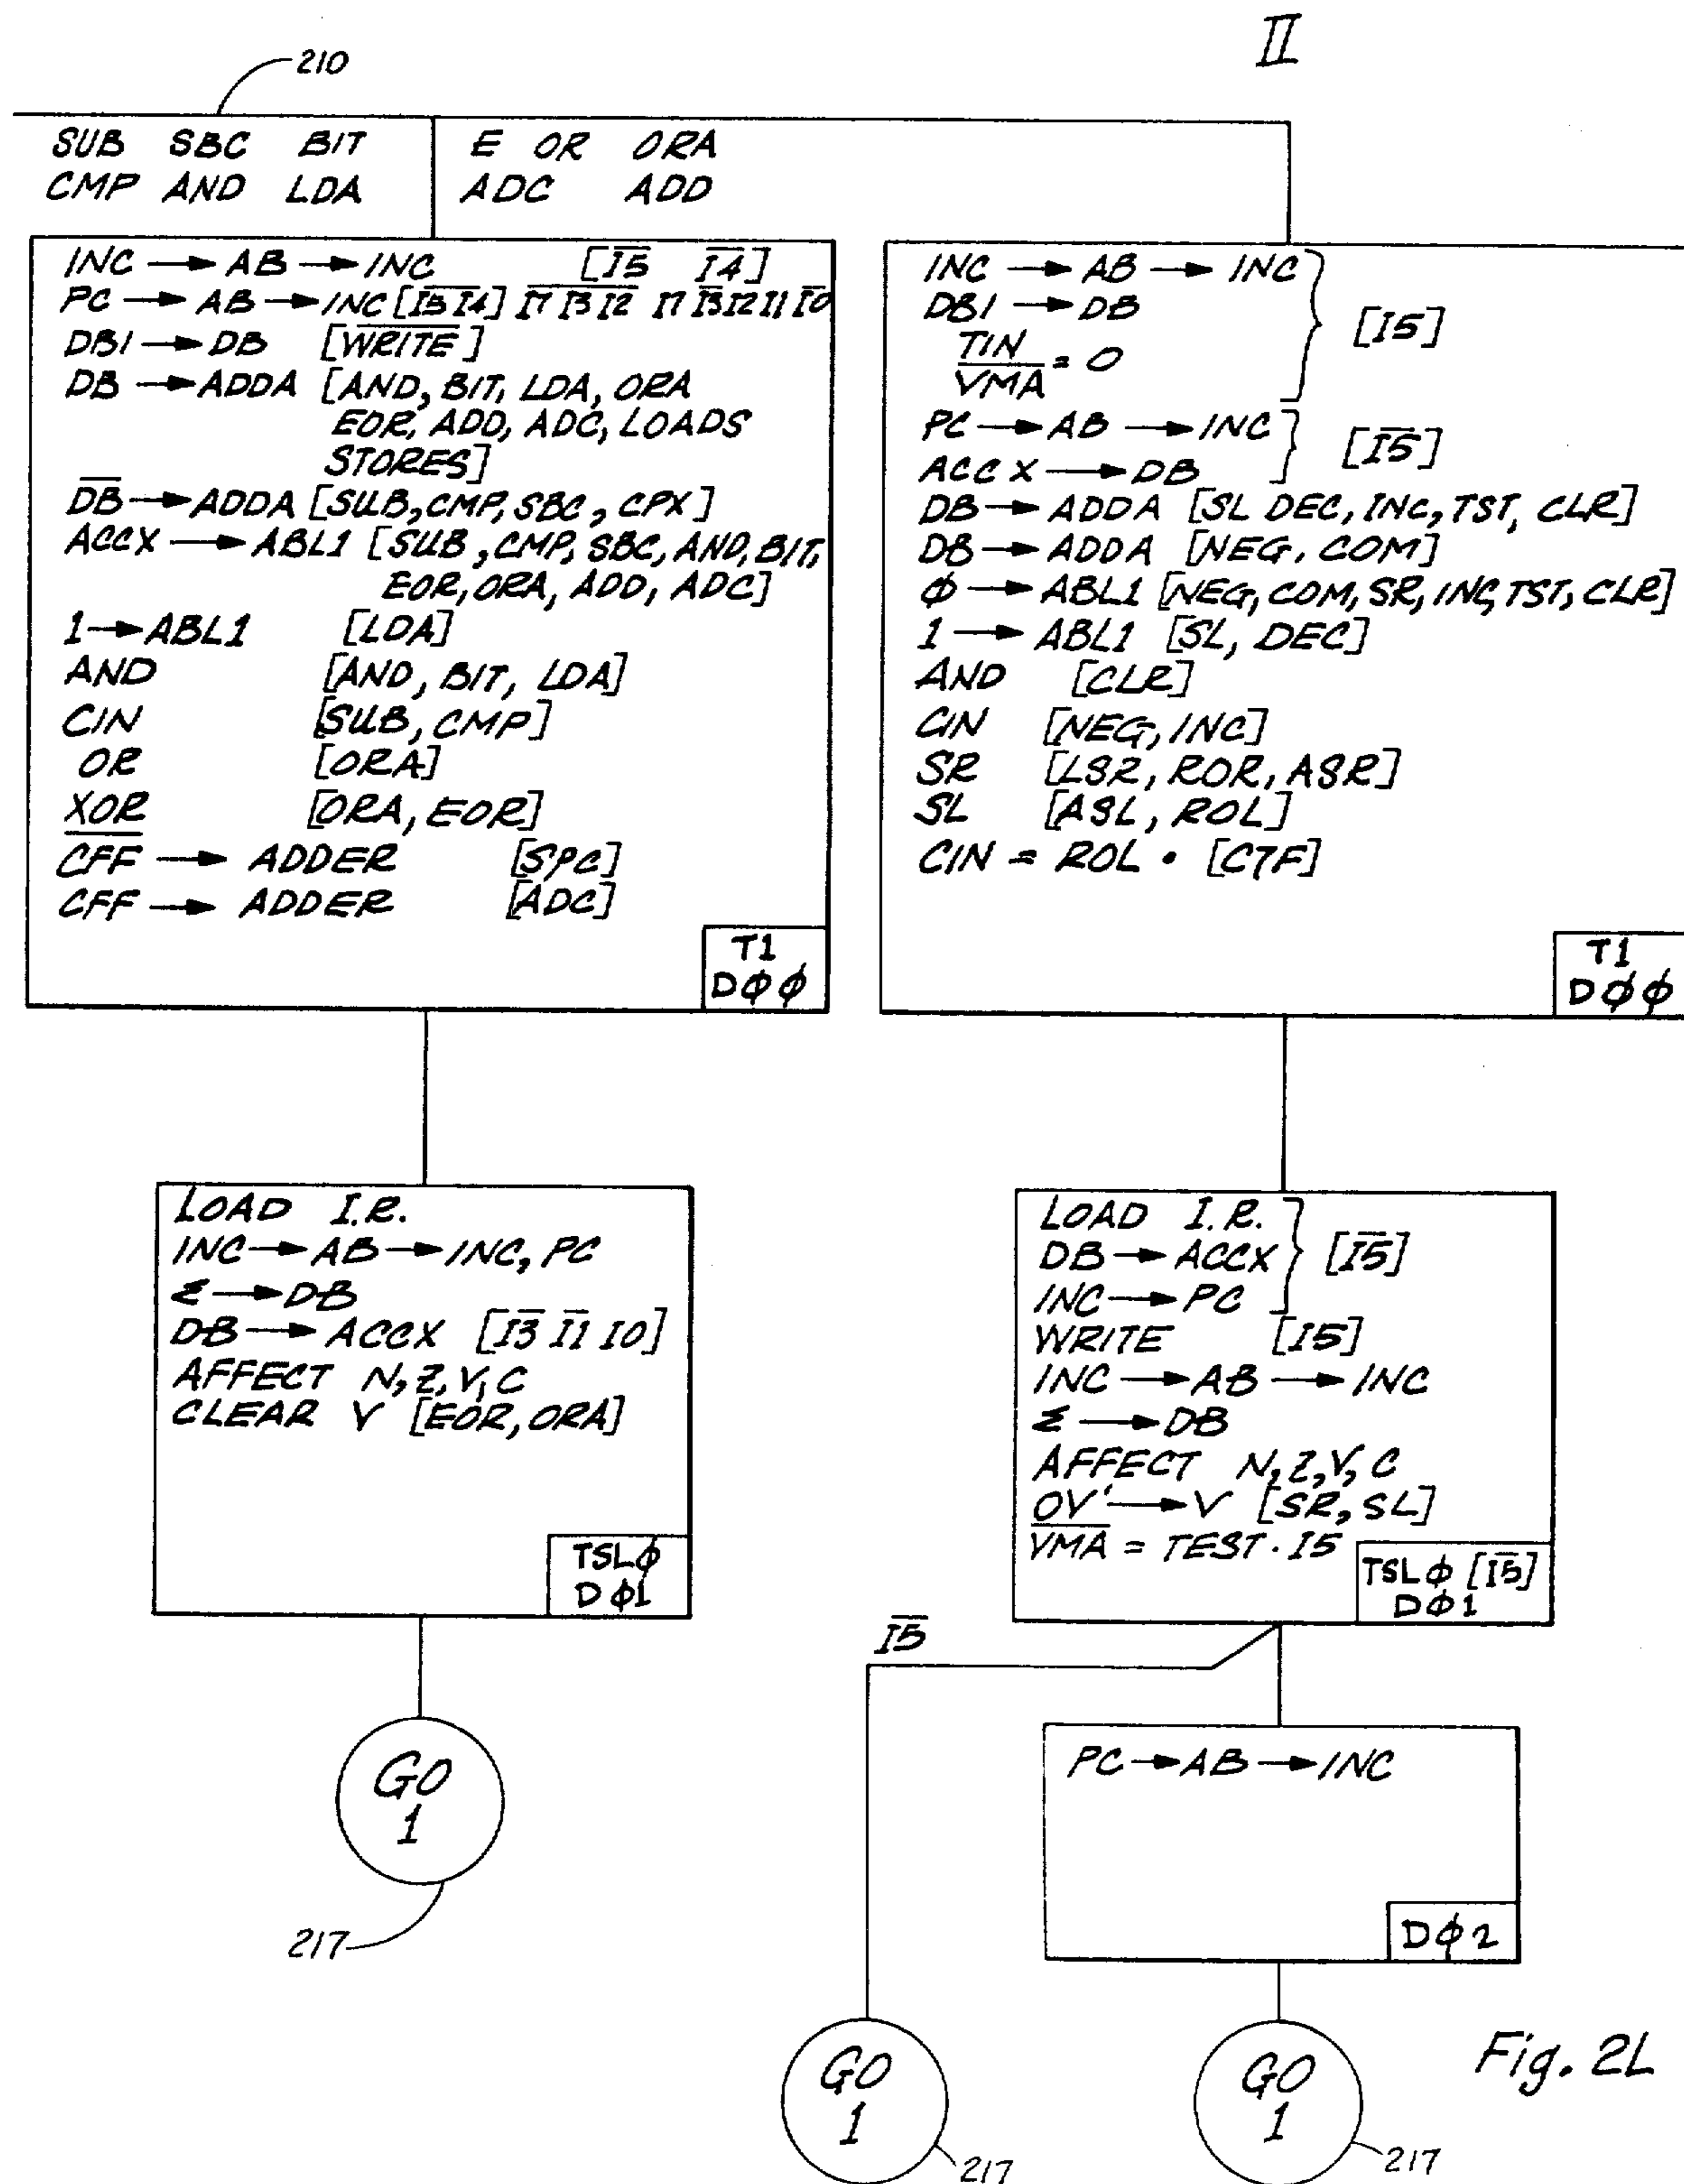 II
210
SUB SBC BIT
CMP AND LDA
E OR ORA
ADC ADD
INC → AB → INC [I̅5̅ I̅4̅]
PC → AB → INC [I̅5̅ I̅4̅] I7 I̅3̅ I̅2̅ I7 I̅3̅ I2 I1 I̅0̅
DBI → DB [W̅R̅I̅T̅E̅]
DB → ADDA [AND, BIT, LDA, ORA
EOR, ADD, ADC, LOADS
STORES]
D̅B̅ → ADDA [SUB, CMP, SBC, CPX]
ACCX → ABL1 [SUB, CMP, SBC, AND, BIT,
EOR, ORA, ADD, ADC]
1 → ABL1 [LDA]
AND [AND, BIT, LDA]
CIN [SUB, CMP]
OR [ORA]
XOR [ORA, EOR]
C̅F̅F̅ → ADDER [SPC]
CFF → ADDER [ADC]
T1
Dϕϕ
INC → AB → INC
DBI → DB
TIN
V̅M̅A̅ = 0
[I5]
PC → AB → INC
ACCX → DB
[I̅5̅]
DB → ADDA [SL DEC, INC, TST, CLR]
DB → ADDA [NEG, COM]
ϕ → ABL1 [NEG, COM, SR, INC, TST, CLR]
1 → ABL1 [SL, DEC]
AND [CLR]
CIN [NEG, INC]
SR [LSR, ROR, ASR]
SL [ASL, ROL]
CIN = ROL • [C7F]
T1
Dϕϕ
LOAD I.R.
INC → AB → INC, PC
Σ → DB
DB → ACCX [I̅3̅ I̅1̅ I0]
AFFECT N, Z, V, C
CLEAR V [EOR, ORA]
TSLϕ
Dϕ1
GO
1
217
LOAD I.R.
DB → ACCX [I̅5̅]
INC → PC
WRITE [I5]
INC → AB → INC
Σ → DB
AFFECT N, Z, V, C
OV' → V [SR, SL]
V̅M̅A̅ = TEST · I5
TSLϕ [I̅5̅]
Dϕ1
I̅5̅
PC → AB → INC
Dϕ2
GO
1
217
GO
1
217
Fig. 2L